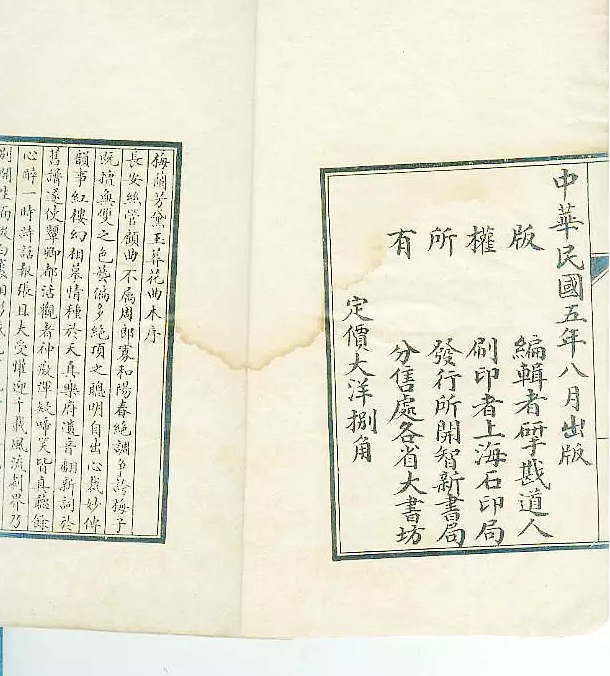 中華民國五年八月出版
版權所有
編輯者硏戡道人
刷印者上海石印局
發行所開智新書局
分售處各省大書坊
定價大洋捌角
梅蘭芳黛玉葬花曲本序
長安絲管顧曲不屬周郎寡和陽春絶調爭誇梅子
既擅無雙之色藝偏多絶頂之聰明自出心裁妙傳
韻事紅樓幻相摹情種於天真樂府遺音翻新詞於
舊譜遂使顰卿都活觀者神凝譚疑啼笑皆真聽餘
心醉一時詩話報張且大受懽迎千載風流劇界乃
別開生面